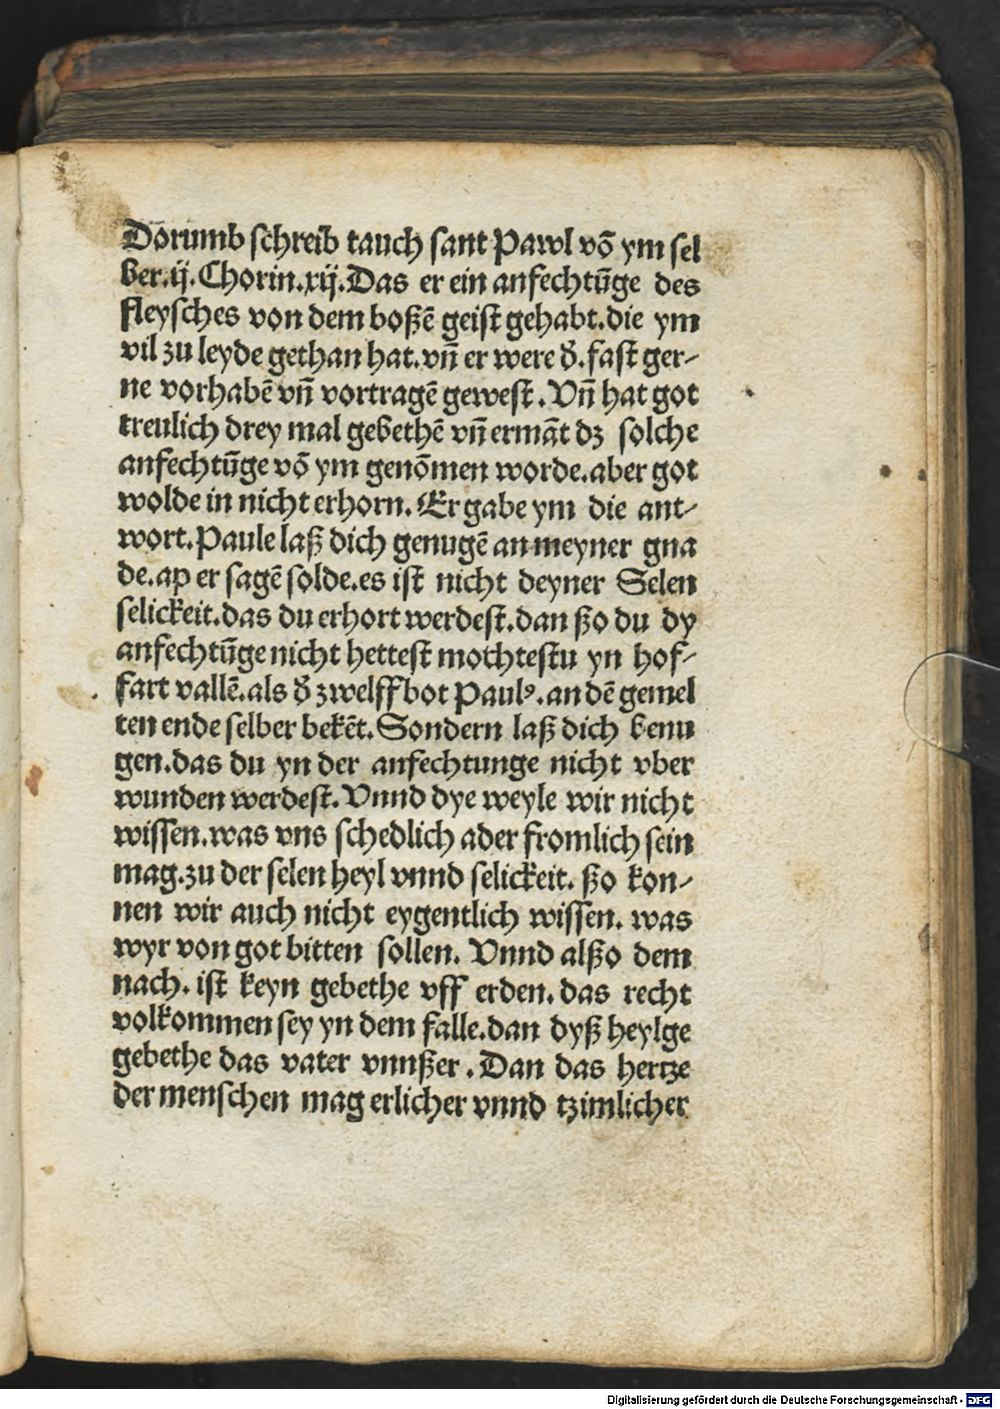 Dorumb schreib tauch sant Pawl vō ym sel
ber.ij.Chorin.xij.Das er ein anfechtūge des
fleysches von dem boßē geist gehabt.die ym
vil zu leyde gethan hat.vn̄ er were d̛.fast ger⸗
ne vorhabē vn̄ vortragē gewest.Vn̄ hat got
treulich drey mal gebethē vn̄ ermāt dz solche
anfechtūge vō ym genōmen worde.aber got
wolde in nicht erhorn.Er gabe ym die ant⸗
wort.Paule laß dich genugē an meyner gna
de.ap er sagē solde.es ist nicht deyner Selen
selickeit.das du erhort werdest.dan ßo du dy
anfechtūge nicht hettest mochtestu yn hof⸗
fart vallē.als d̛ zwelffbot Paulꝰ.an dē gemel
ten ende selber bekēt.Sondern laß dich benu
gen.das du yn der anfechtunge nicht vber
wunden werdest.Vnnd dye weyle wir nicht
wissen.was vns schedlich ader fromlich sein
mag.zu der selen heyl vnnd selickeit. ßo kon⸗
nen wir auch nicht eygentlich wissen. was
wyr von got bitten sollen. Vnnd alßo dem
nach. ist keyn gebethe vff erden. das recht
volkommen sey yn dem falle.dan dyß heylge
gebethe das vater vnnßer. Dan das hertze
der menschen mag erlicher vnnd tzimlicher
Digitalisierung gefördert durch die Deutsche Forschungsgemeinschaft - DFG